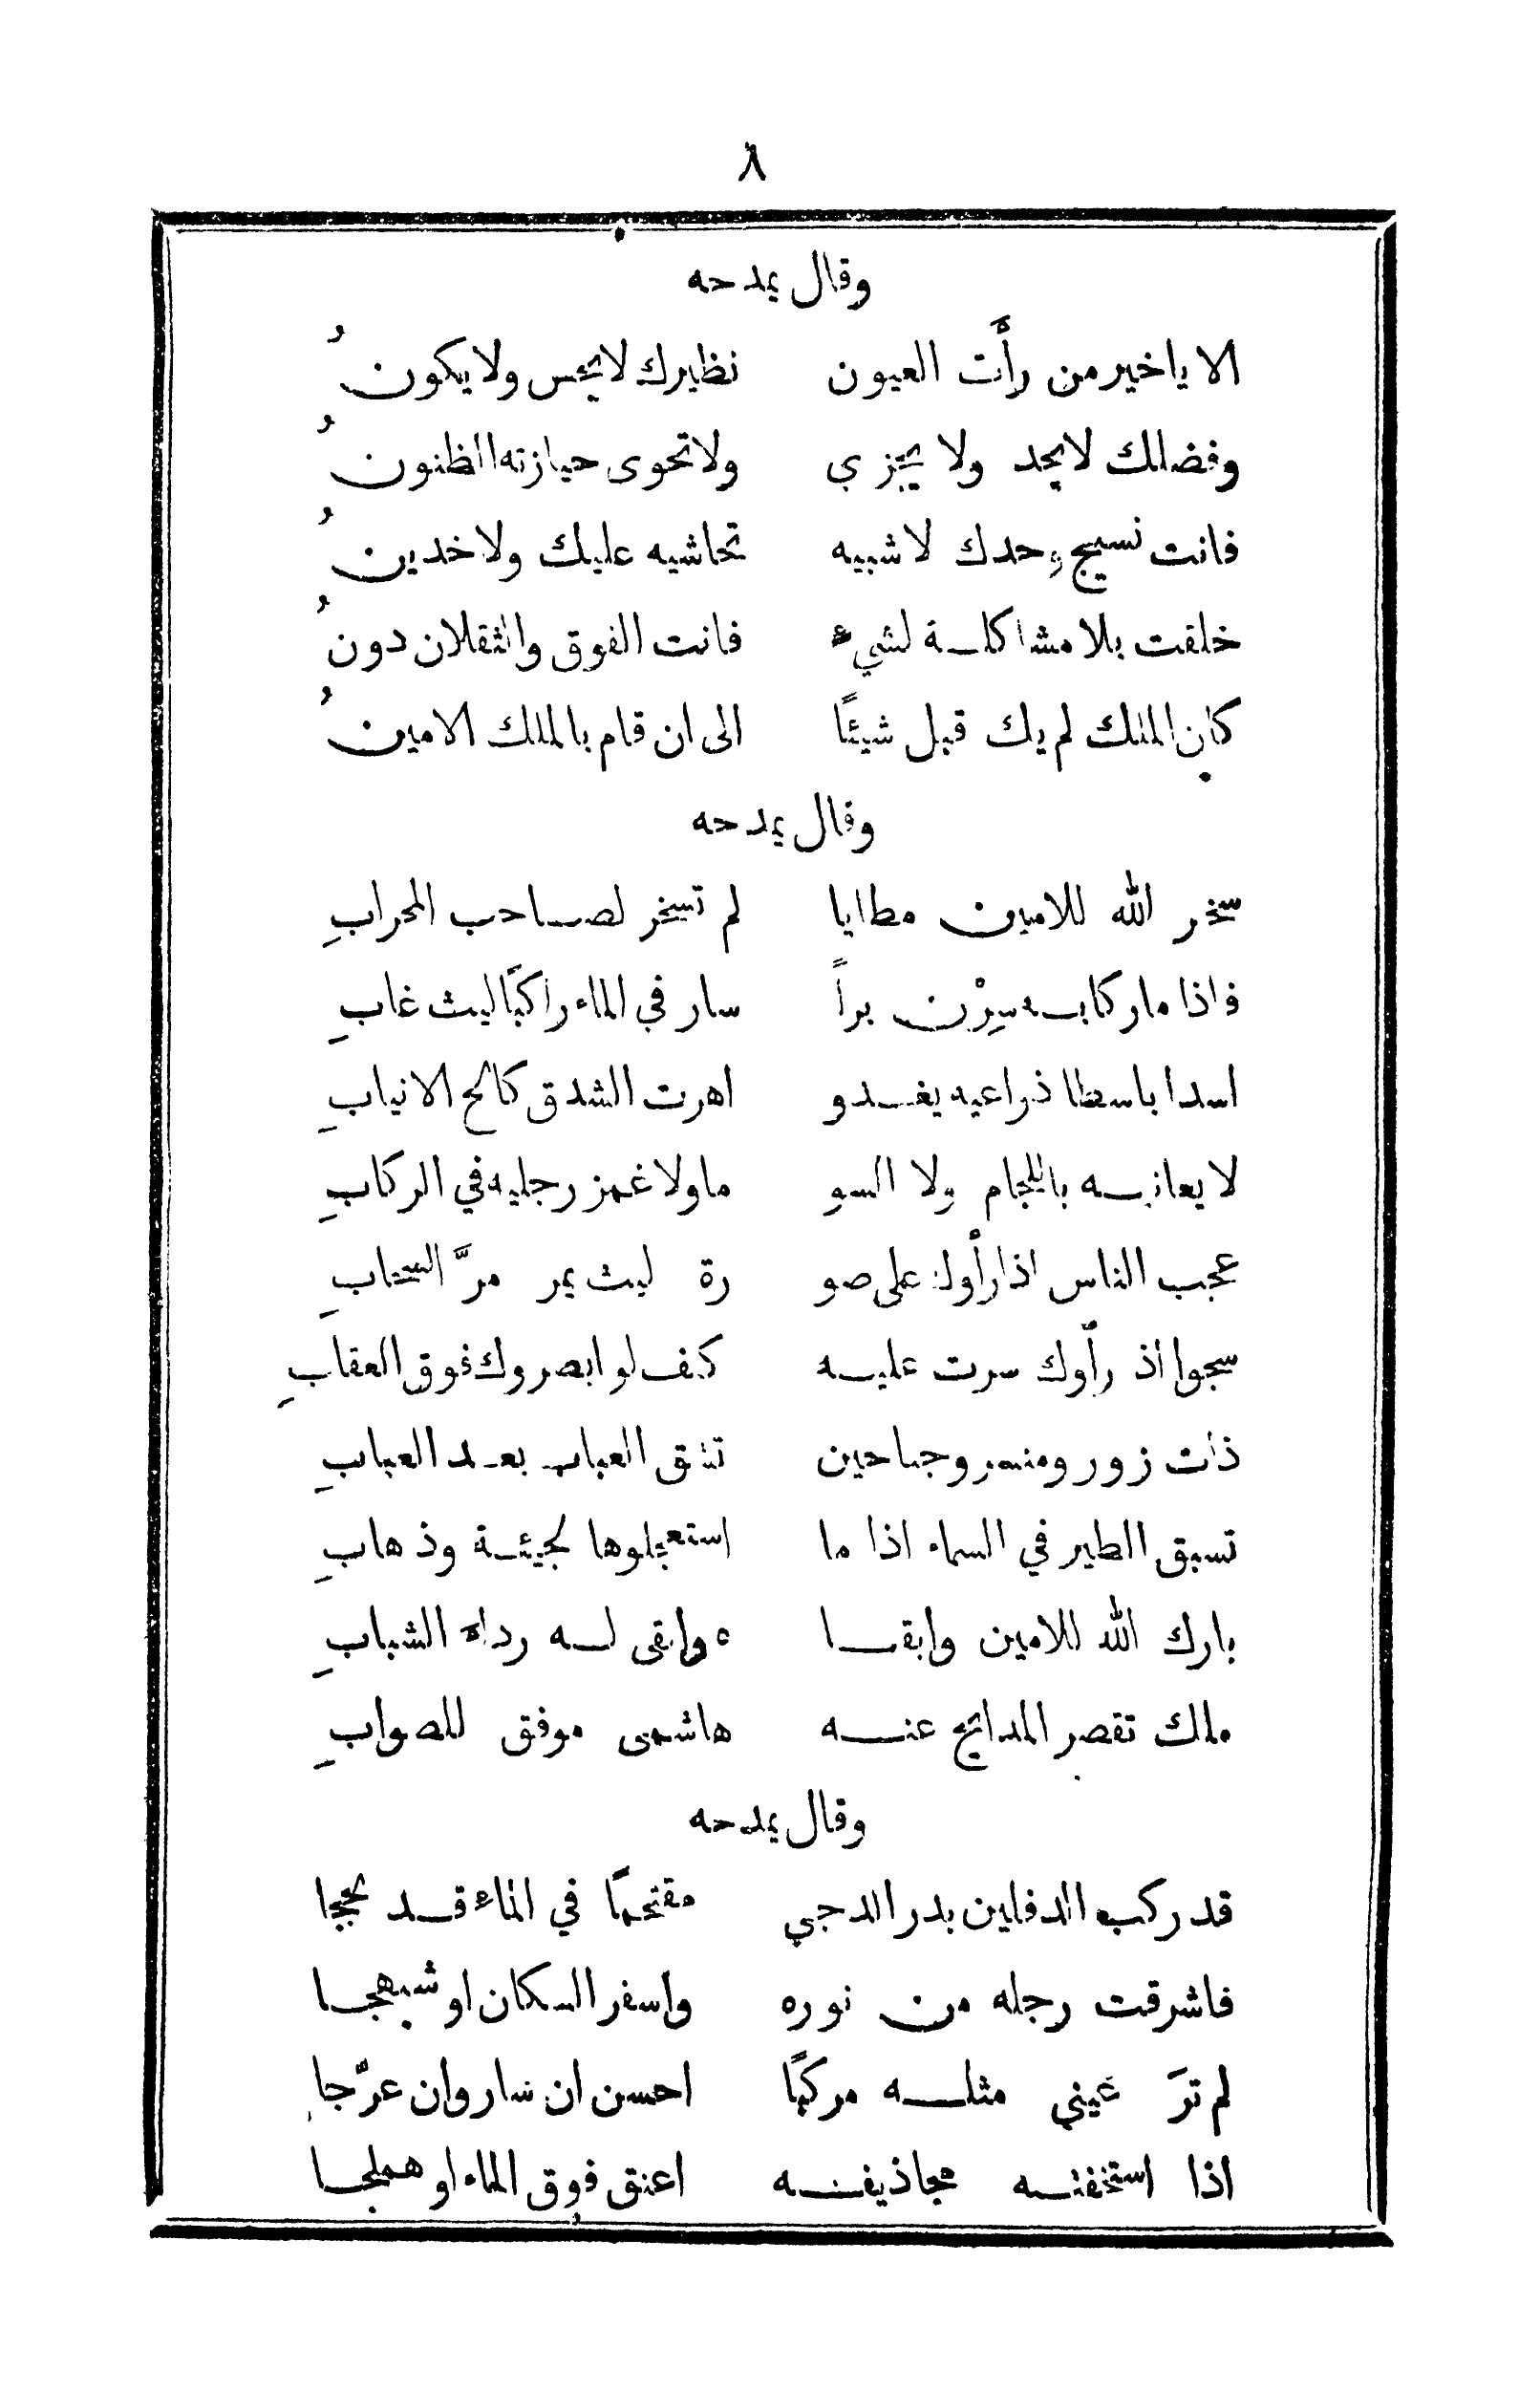 ٨
وقال يمدحه
الا يا خير من رأت العيون نظيرك لا يحس ولا يكونُ
وفضلك لا يحد ولا يجزي ولا تحوى حيازته الظنونُ
فانت نسيج وحدك لا شبيه تحاشيه عليك ولا خدينُ
خلقت بلا مشاكلة لشيء فانت الفوق والثقلان دونُ
كان الملك لم يك قبل شيئًا الى ان قام بالملك الامينُ
وقال يمدحه
سخر الله للامين مطايا لم تسخر لصاحب المحرابِ
فاذا ما ركابه سِرْن براً سار في الماء راكبًا ليث غابِ
اسدا باسطا ذراعيه يغدو اهرت الشدق كالح الانيابِ
لا يعانيه باللجام ولا السو ما ولا غمز رجليه في الركابِ
عجب الناس اذا رأوك على صو رة ليث يمر مرَّ السحابِ
سجوا اذ رأوك سرت عليه كيف لو ابصروك فوق العقابِ
ذات زور ومنسر وجناحين تشق العباب بعد العبابِ
تسبق الطير في السماء اذا ما استعجلوها لجيئة وذهابِ
بارك الله للامين وابقا ه وابقى له رداء الشبابِ
ملك تقصر المدايح عنه هاشمى موفق للصوابِ
وقال يمدحه
قد ركب الدفلين بدر الدجي مقتحمًا في الماء قد لججا
فاشرقت رجله من نوره واسفر السكان او شبهجا
لم ترَ عيني مثله مركبًا احسن ان سار وان عرَّجا
اذا استخفته مجاذيفه اعنق فوق الماء او هملجا